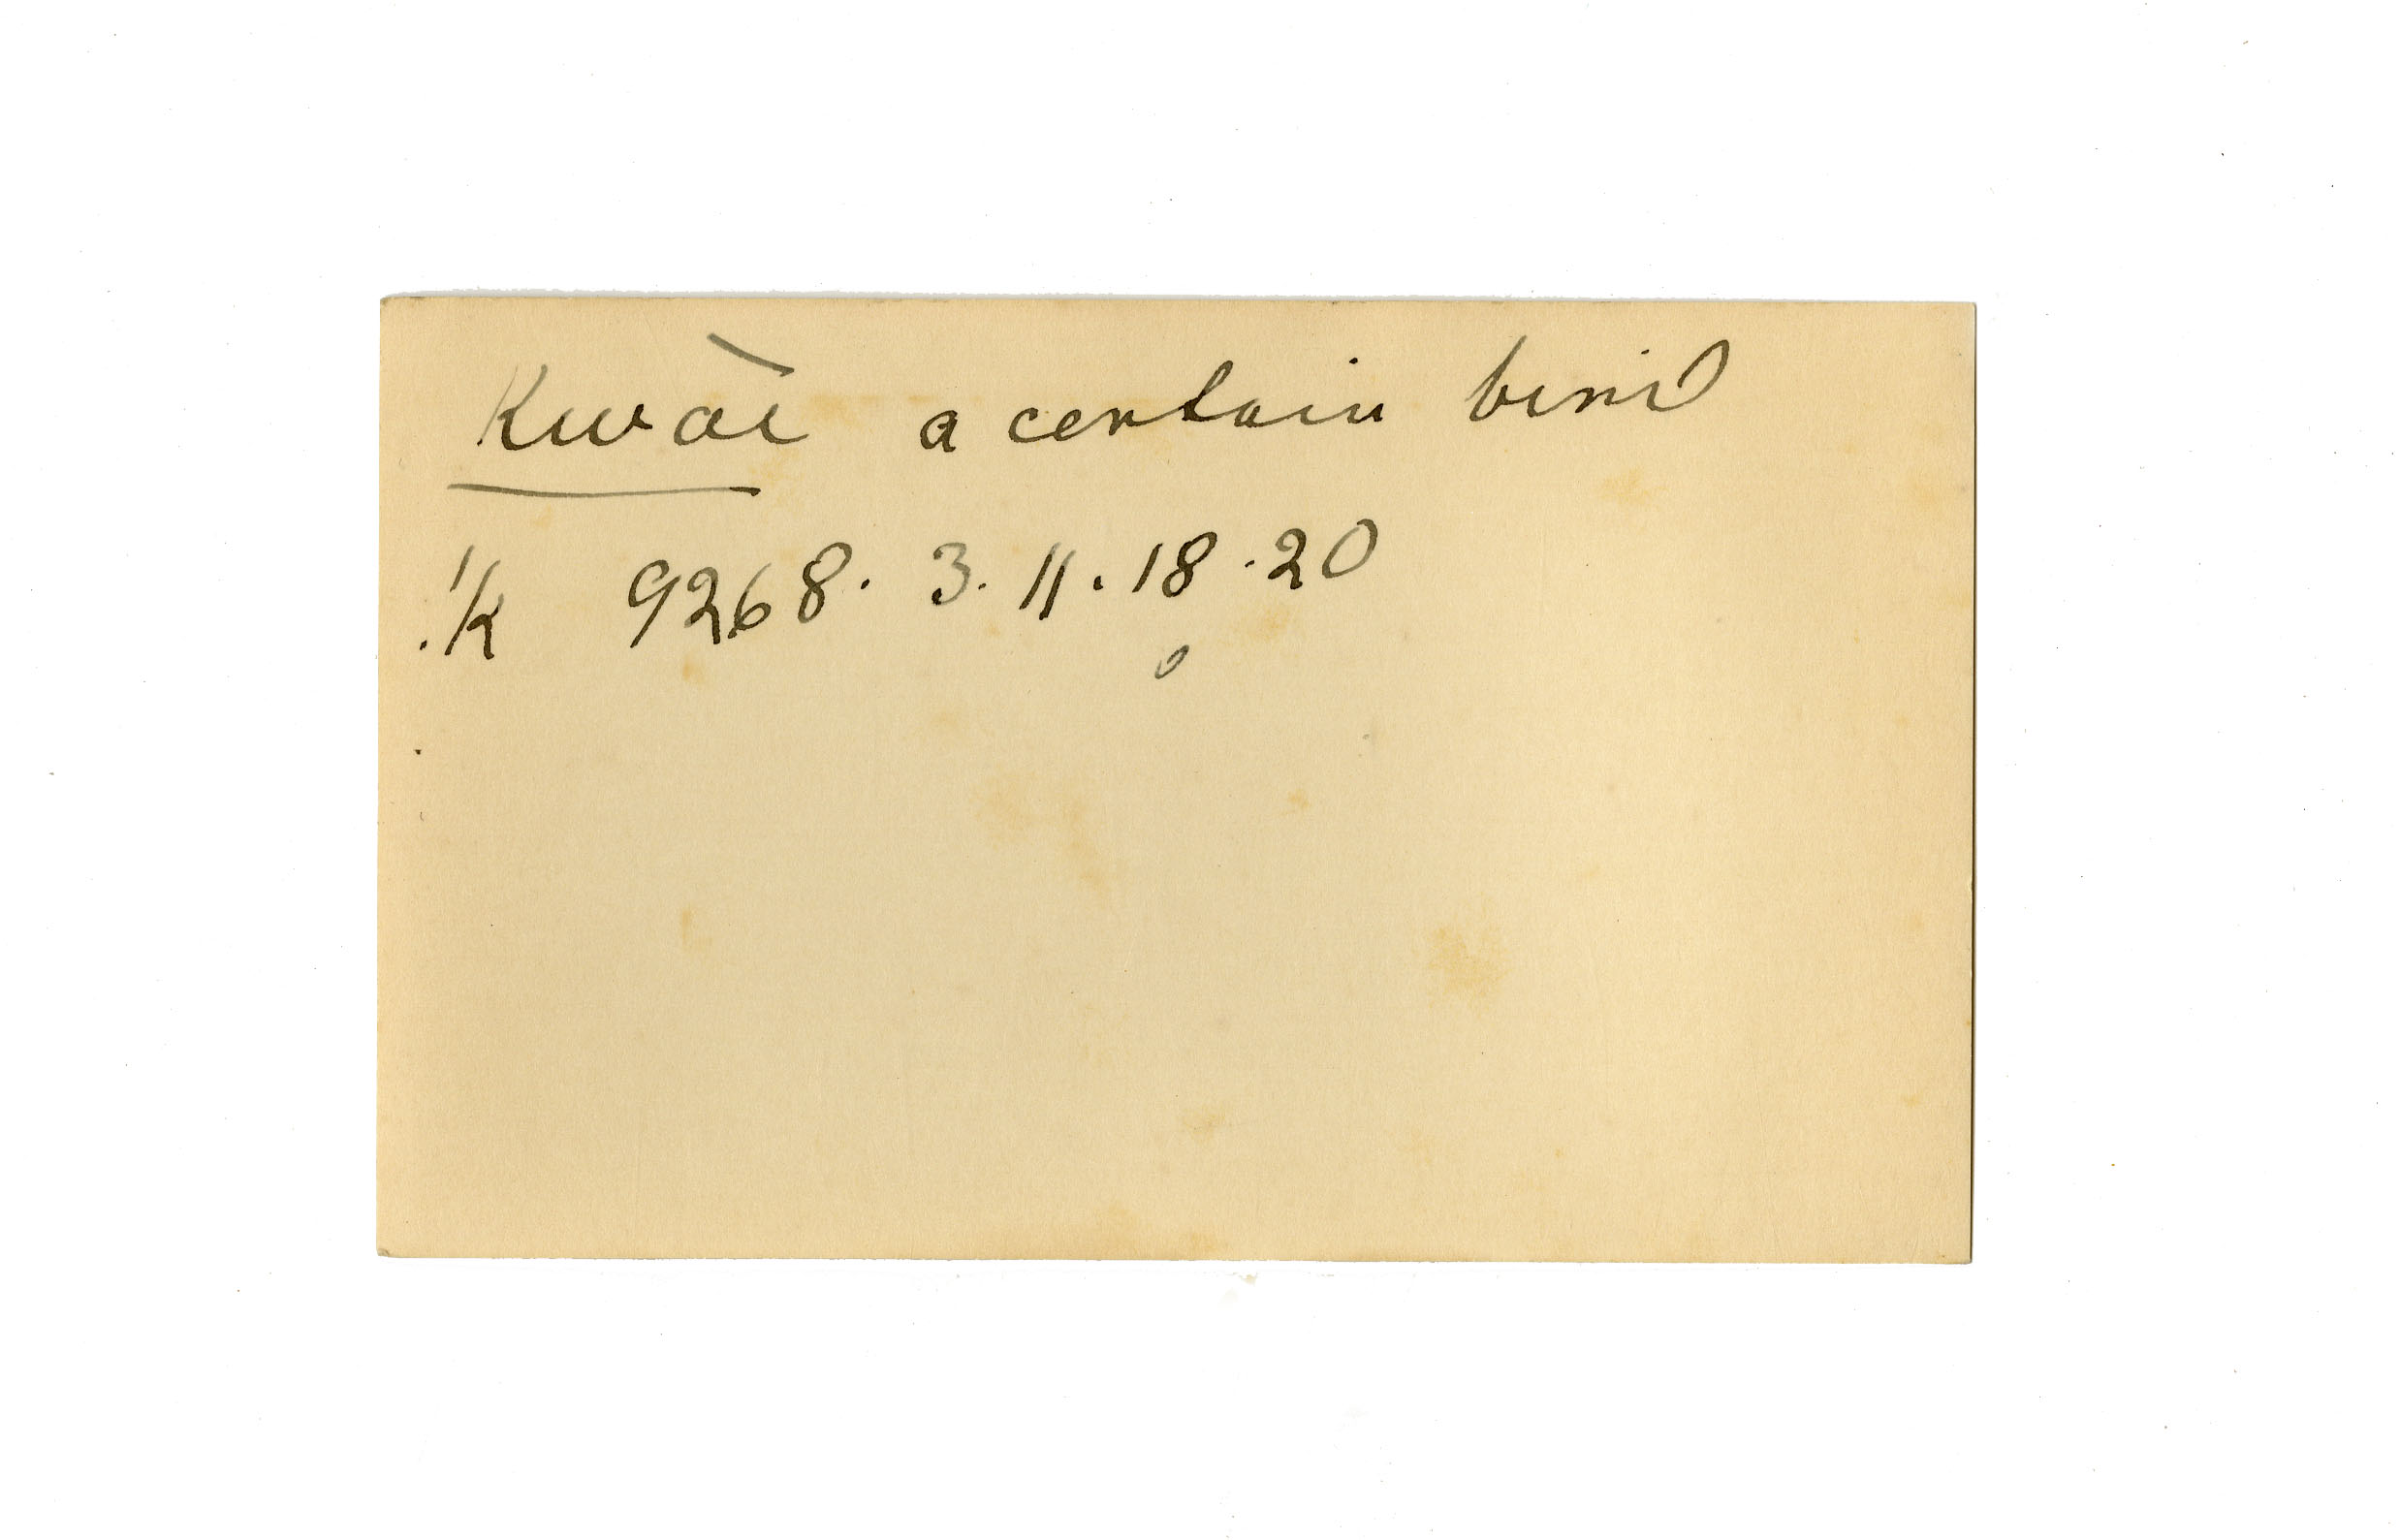 Kwàe a certain bird
!k 9268. 3. 11. 18. 20